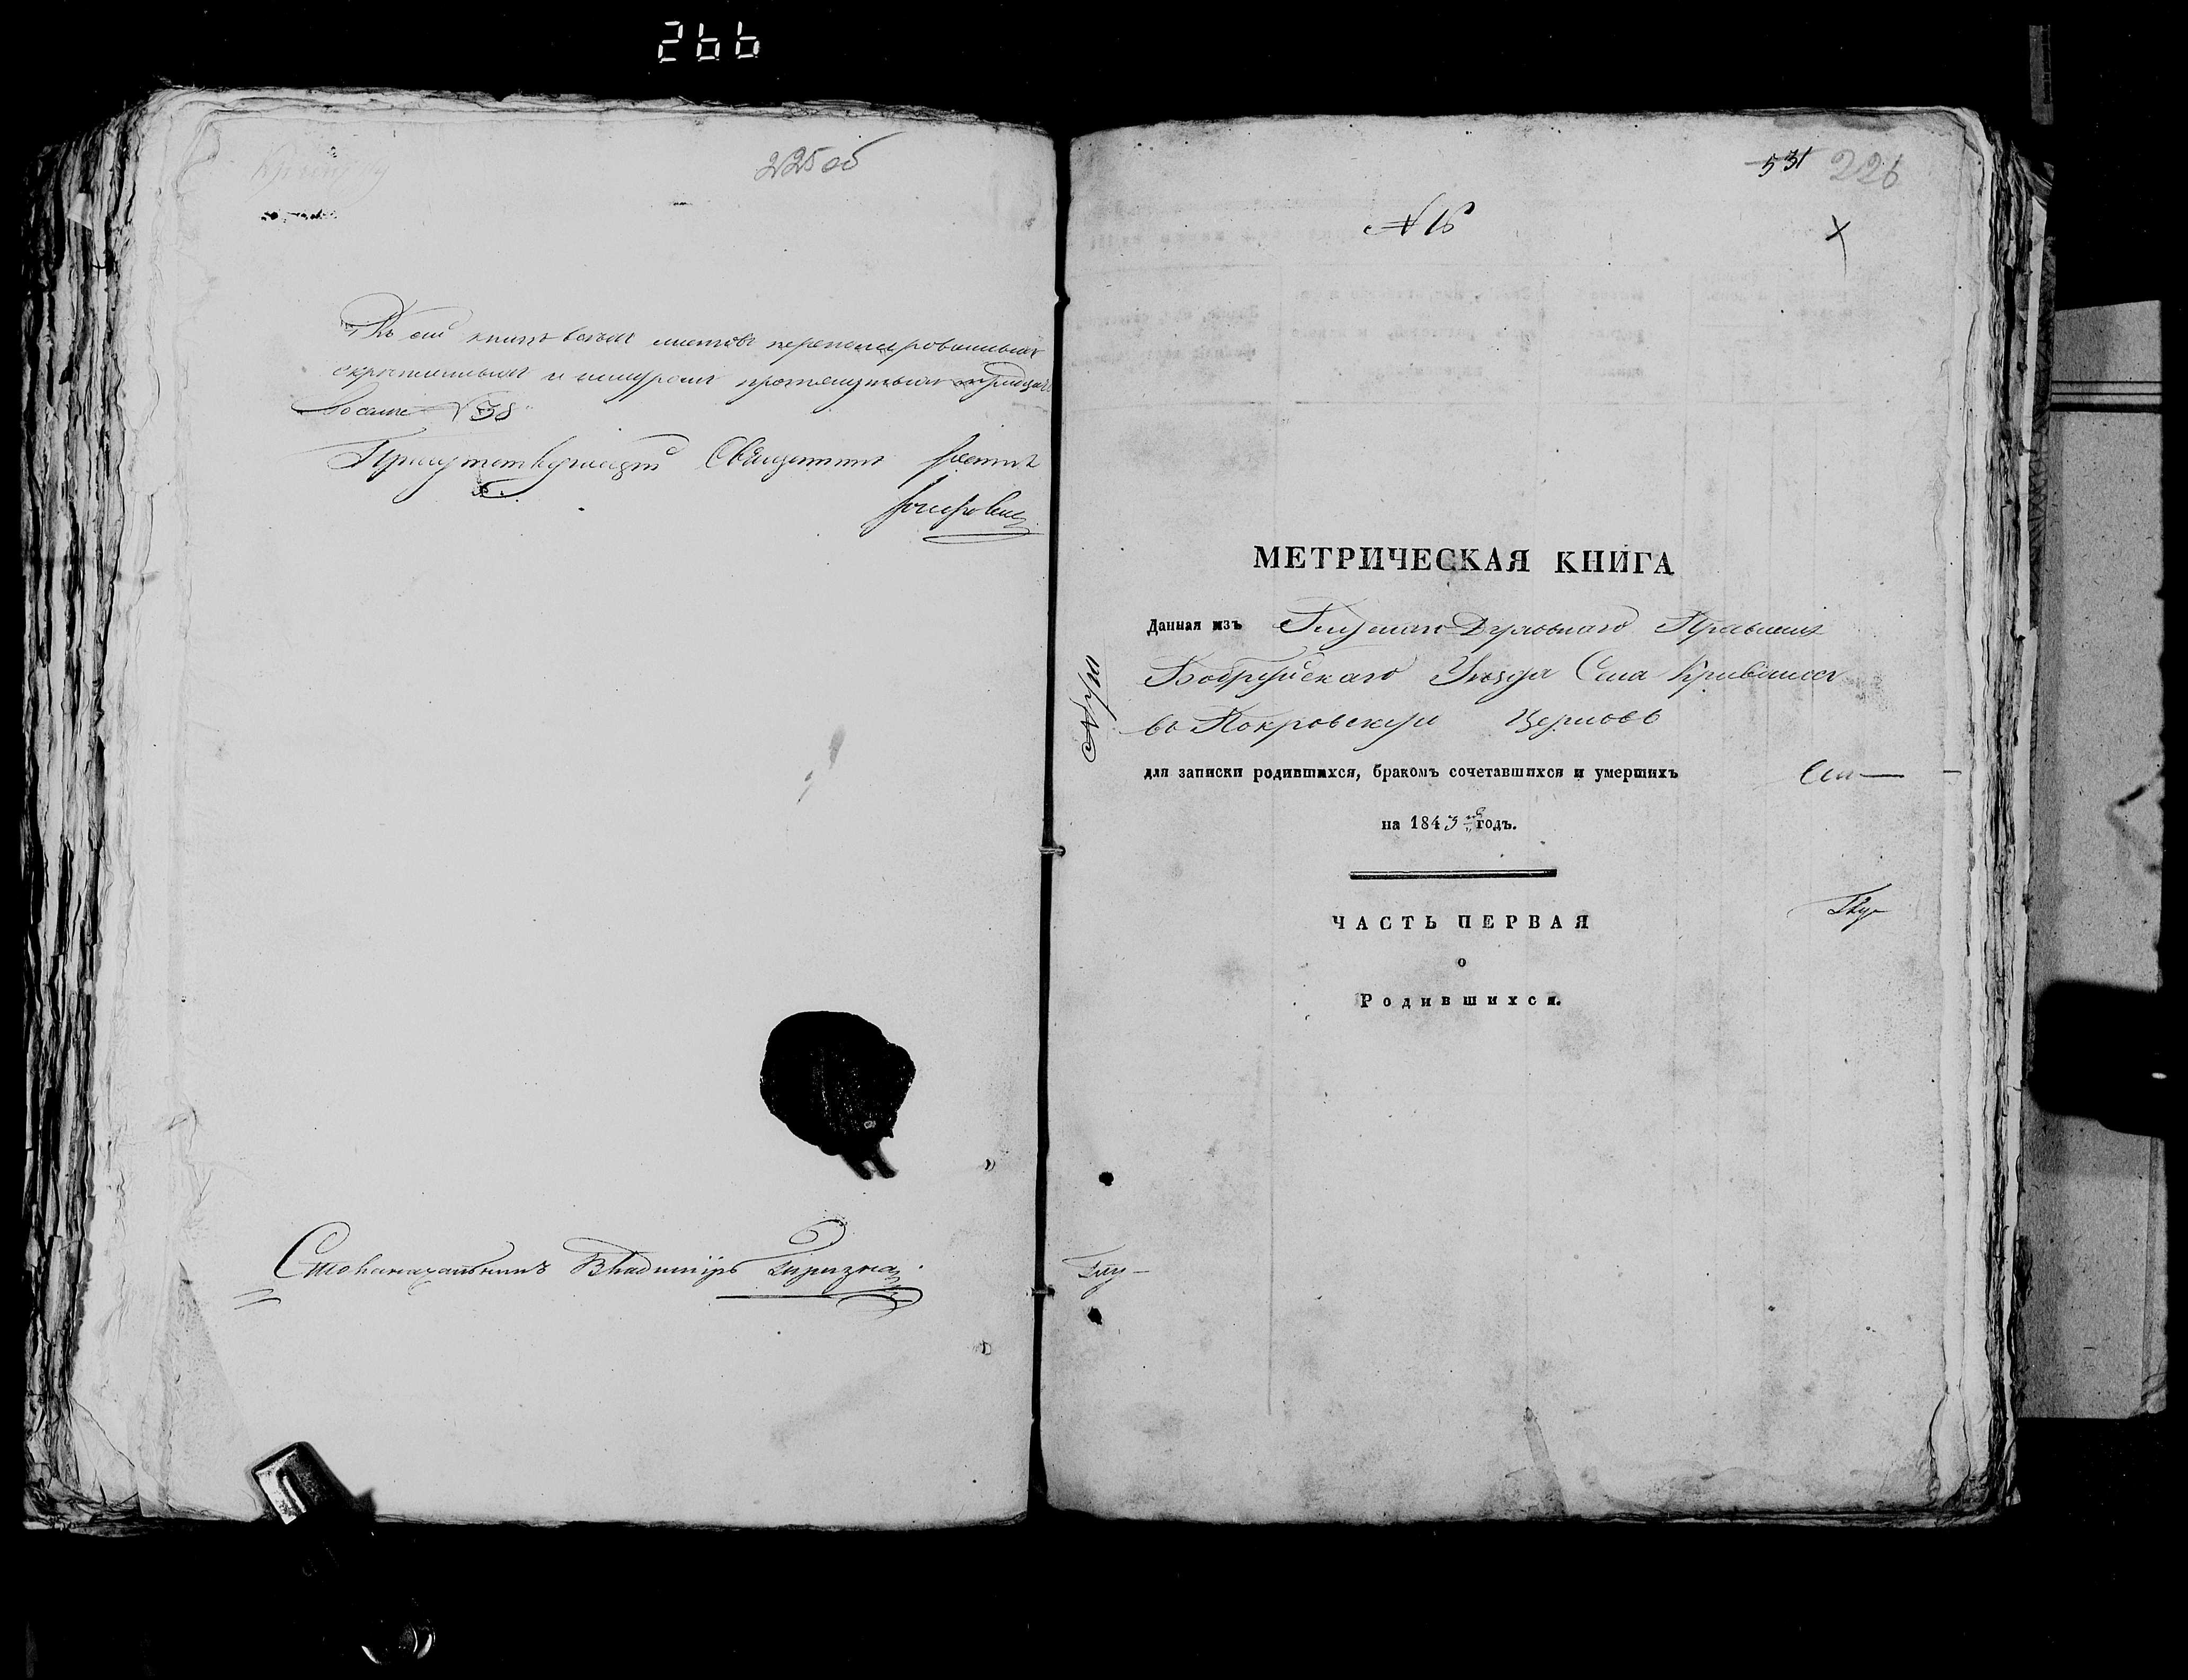 266
225 об
Въ сей книгѣ всѣхъ листовъ перенумерованныхъ
скрепленныхъ и шнуромъ протянутыхъ тридцать
восемь N 38
Присутствующій Священникъ
Столоначальникъ Владиміръ
531 226
N 16
X
МЕТРИЧЕСКАЯ КНИГА
Данная изъ Духовнаго Правленія
Бобруйскаго Уѣзда Села
въ Покровскую Церковь
для записки родившихся, бракомъ сочетавшихся и умершихъ
на 1843 годъ.
ЧАСТЬ ПЕРВАЯ
о
Родившихся.